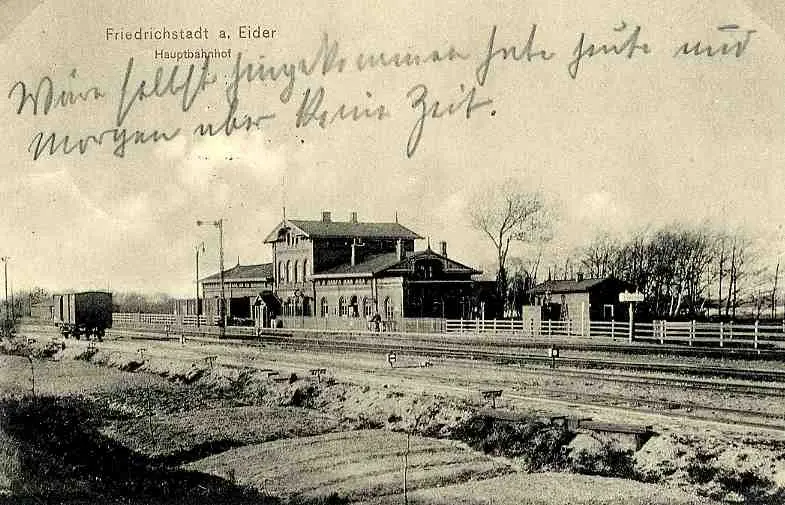 Friedrichstadt a. Eider
Hauptbahnhof
Wäre selbst hingekommen habe heute und
Morgen aber keine Zeit.